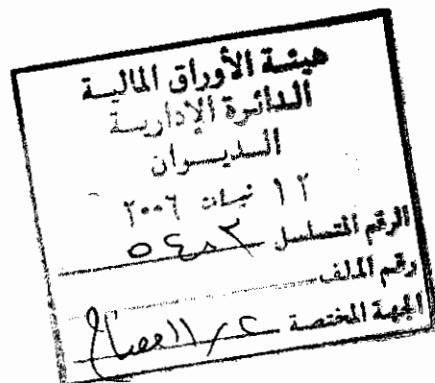 هيئة الأوراق المالية
الدائرة الإدارية
الديوان
١٢ نيسان ٢٠٠٦
الرقم المتسلسل
رقم الملف
الجهة المختصة